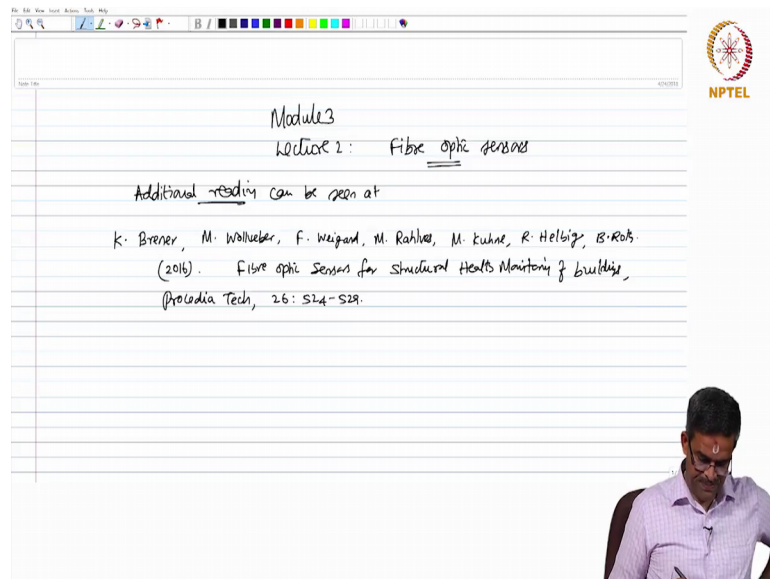 File Edit View Insert Actions Tools Help
B I
Note Title
4/24/2018
NPTEL
Module 3
Lecture 2: Fibre optic sensors
Additional reading can be seen at
K. Brener, M. Wollueber, F. Weigand, M. Rahlves, M. Kuhne, R. Helbig, B. Roth.
(2016). Fibre optic Sensors for Structural Health Monitoring of buildings,
Procedia Tech, 26: 524-529.